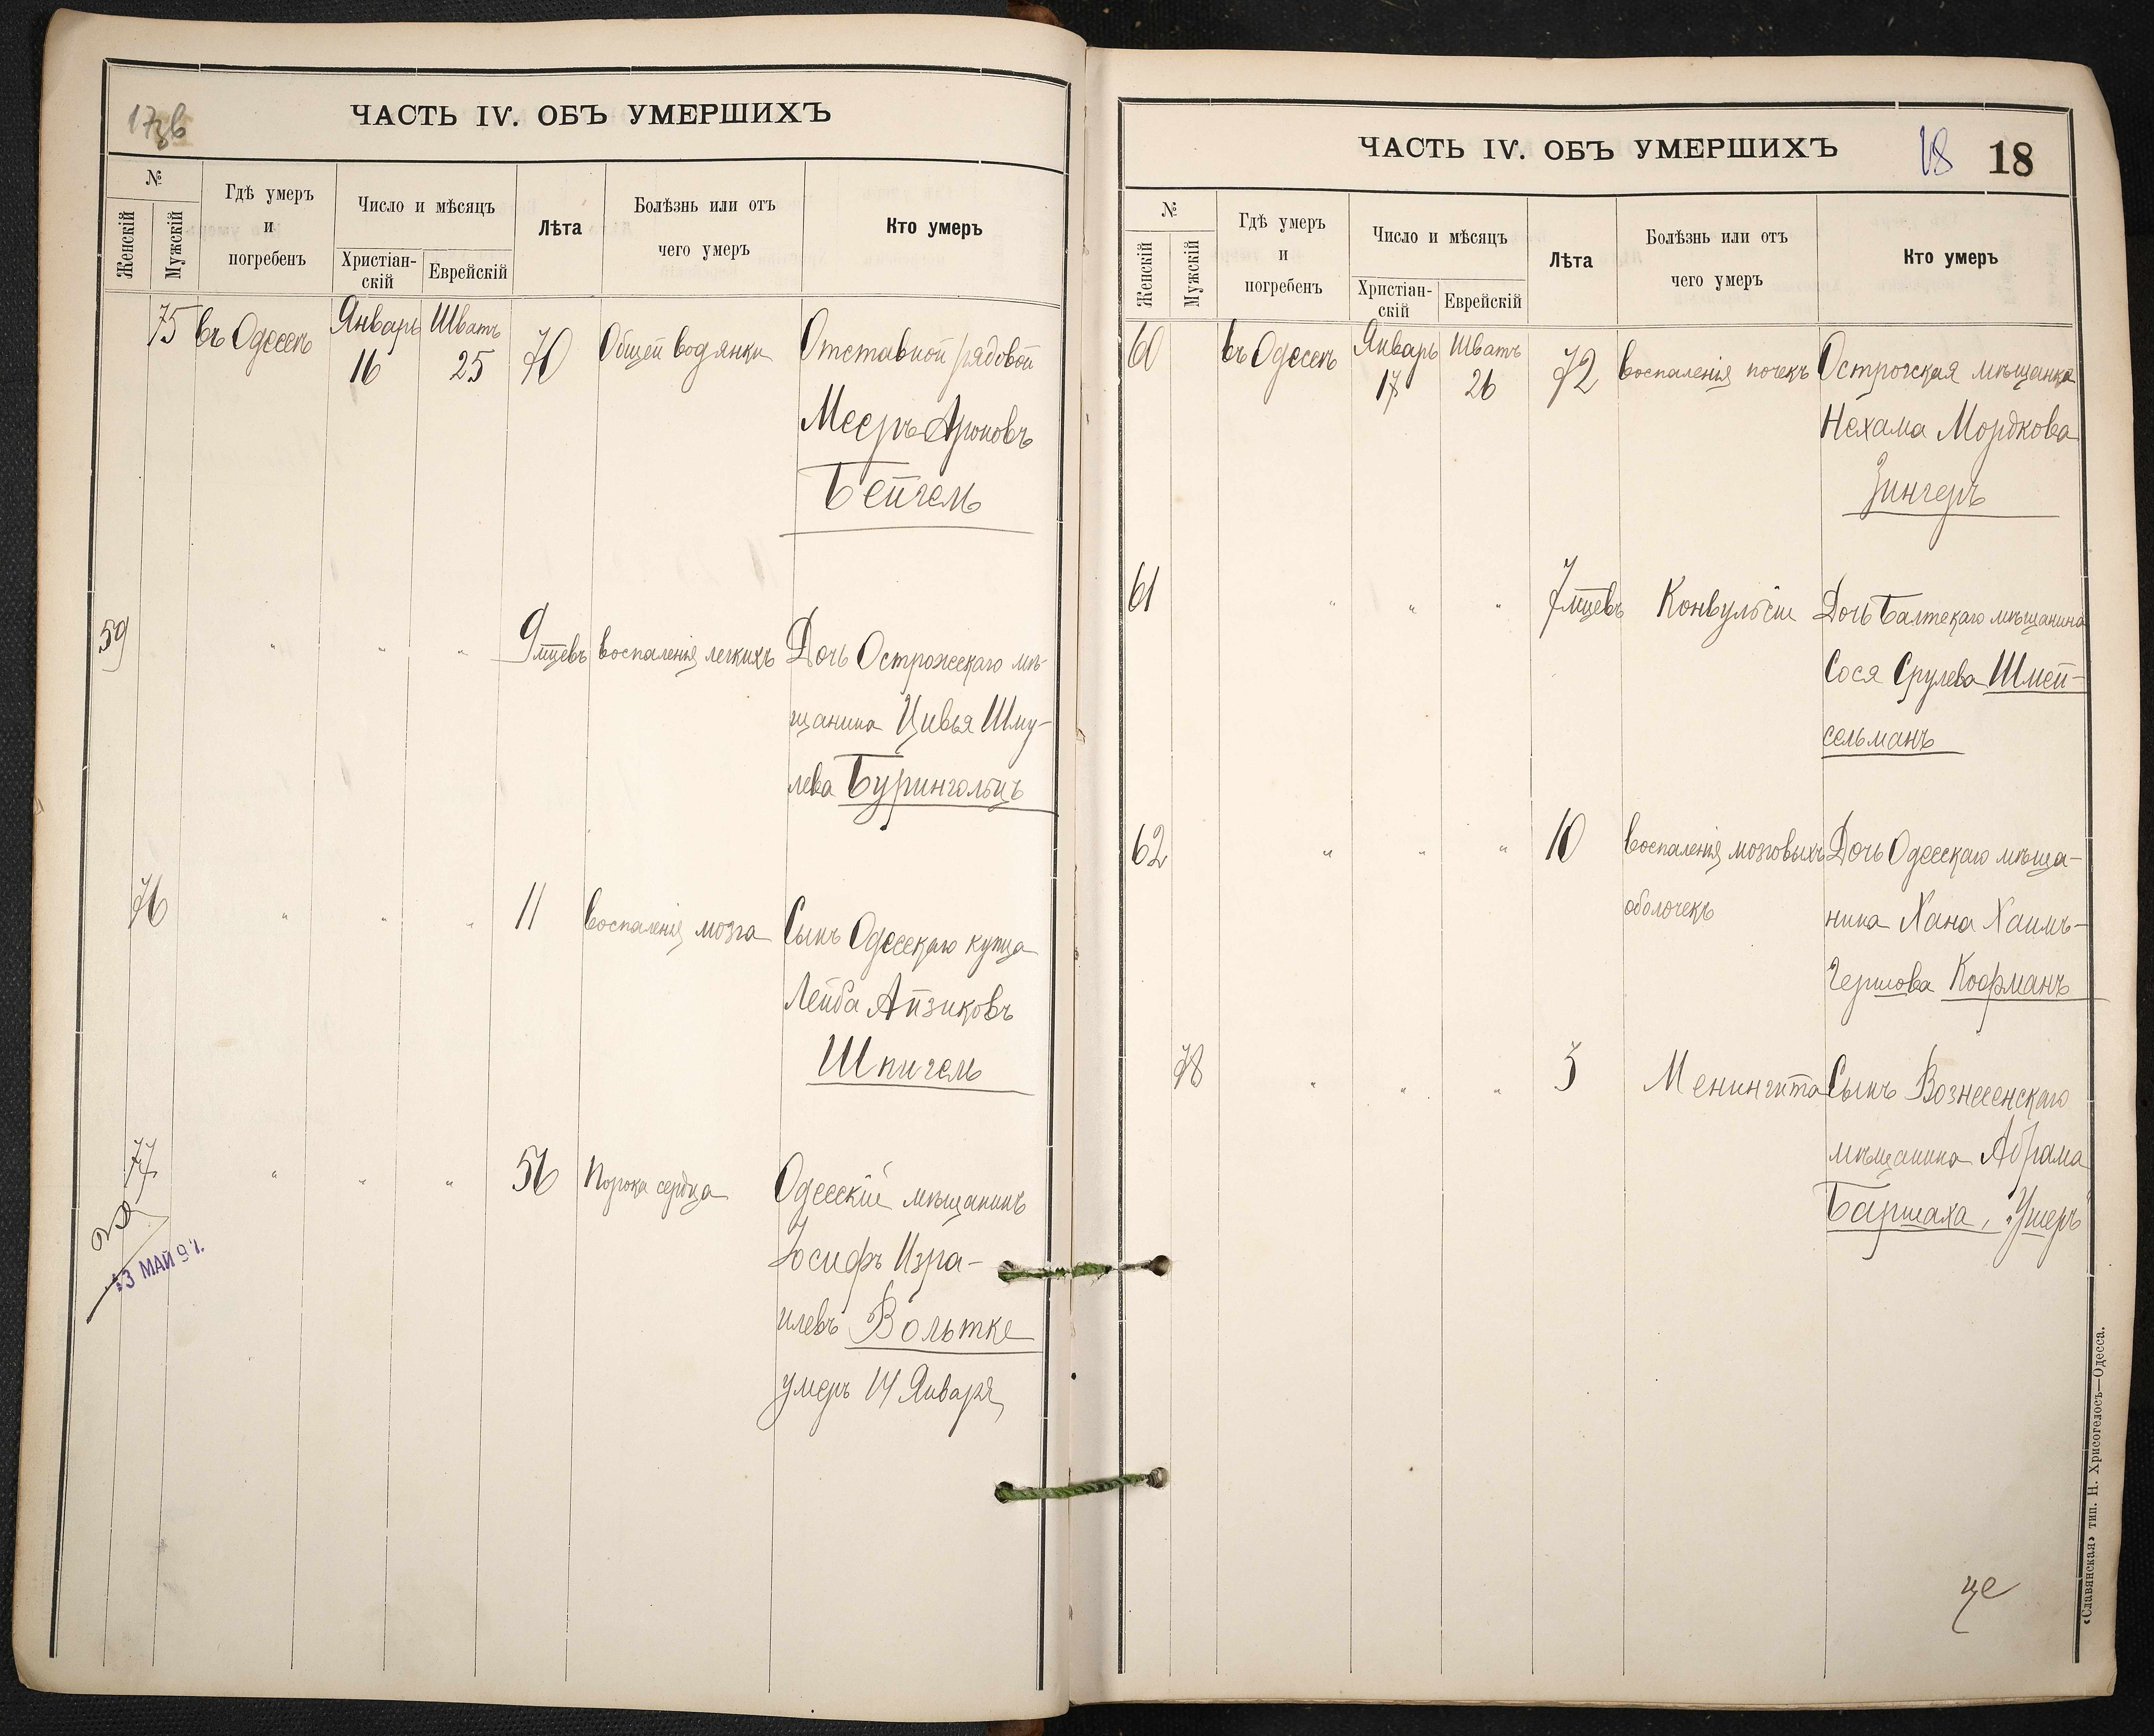 17зв
ЧАСТЬ IV. ОБЪ УМЕРШИХЪ
№
Женскій
Мужскій
Гдѣ умеръ
и
погребенъ
Число и мѣсяцъ
Христіан-
скій
Еврейскій
Лѣта
Болѣзнь или отъ
чего умеръ
Кто умеръ
75 въ Одессѣ Январь Шватъ 70 Общей водянки Отставной рядовой
16 25
Мееръ Ароновъ
Бейгель
59 " " " 9 мцевъ воспаленія легкихъ Дочь Острожскаго мѣ-
щанина Цивья Шму-
лева Бурингольцъ
76 " " " 11 воспаленія мозга Сынъ Одесскаго купца
Лейба Айзиковъ
Шпигель
77 " " " 56 Порока сердца Одесскій мѣщанинъ
Іосифъ Изра-
илевъ Вольтке
умеръ 14 Января
3 МАЙ 97.
ЧАСТЬ IV. ОБЪ УМЕРШИХЪ
18 18
№
Женскій
Мужскій
Гдѣ умеръ
и
погребенъ
Число и мѣсяцъ
Христіан-
скій
Еврейскій
Лѣта
Болѣзнь или отъ
чего умеръ
Кто умеръ
60 въ Одессѣ Январь Шватъ 72 воспаленія почекъ Острогская мѣщанка
17 26
Нехама Мордкова
Зингеръ
61 " " " 7 мцевъ Конвульсіи Дочь Балтскаго мѣщанина
Сося Срулева Шмей-
сельманъ
62 " " " 10 воспаленія мозговыхъ Дочь Одесскаго мѣща-
оболочекъ
нина Хана Хаимъ-
Гершова Кофманъ
78 " " " 5 Менингита Сынъ Вознесенскаго
мѣщанина Абрама
Баршаха, "Ушеръ"
«Славянская» тип. Н. Хрисогелосъ—Одесса.